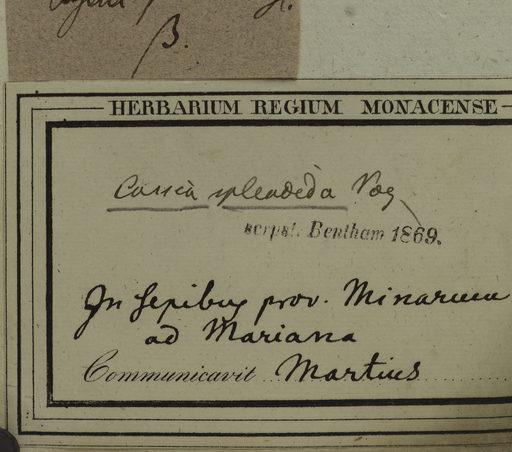 β.
HERBARIUM REGIUM MONACENSE
Cassia splendida Vog
scrpst. Bentham 1869.
In sepibus prov. Minarum
ad Mariana
Communicavit Martius